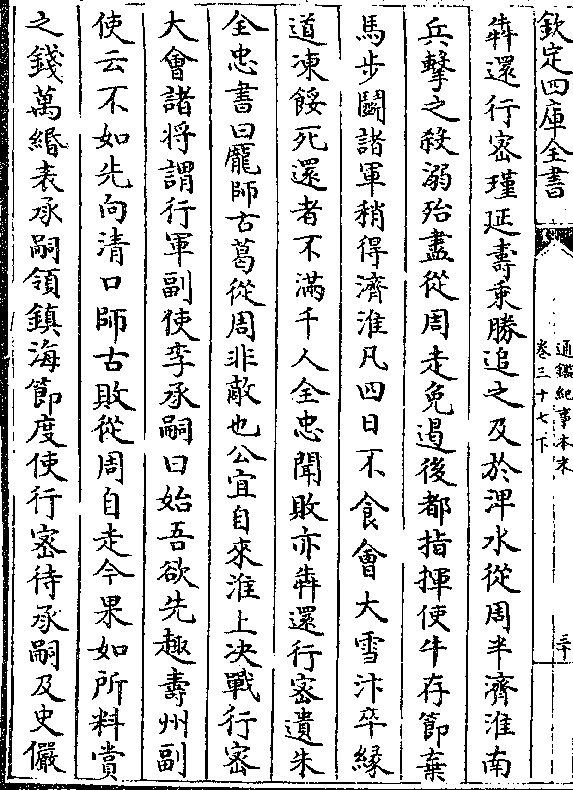 欽定四庫全書
通鑑紀事本末
卷三十七下
三十
犇還行密瑾延壽乘勝追之及於渒水從周半濟淮南
兵擊之殺溺殆盡從周走免遏後都指揮使牛存節棄
馬步鬬諸軍稍得濟淮凡四日不食會大雪汴卒緣
道凍餒死還者不滿千人全忠聞敗亦犇還行密遺朱
全忠書曰龎師古葛從周非敵也公宜自來淮上決戰行密
大會諸将謂行軍副使李承嗣曰始吾欲先趣壽州副
使云不如先向清口師古敗從周自走今果如所料賞
之錢萬緡表承嗣領鎮海節度使行密待承嗣及史儼